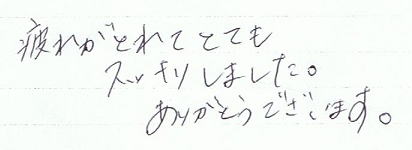 疲れがとれてとても
スッキリしました。
ありがとうございます。